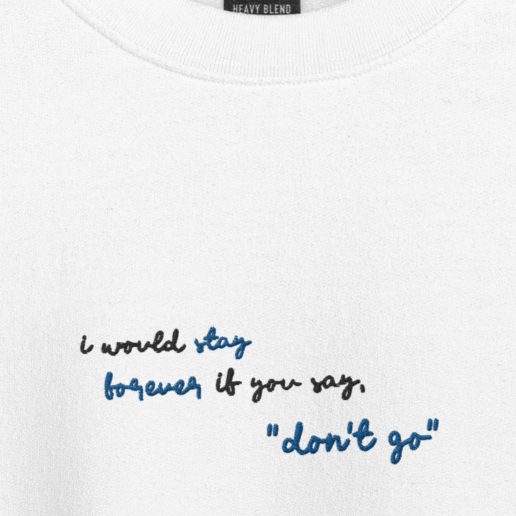 HEAVY BLEND
i would stay
forever if you say,
"don't go"